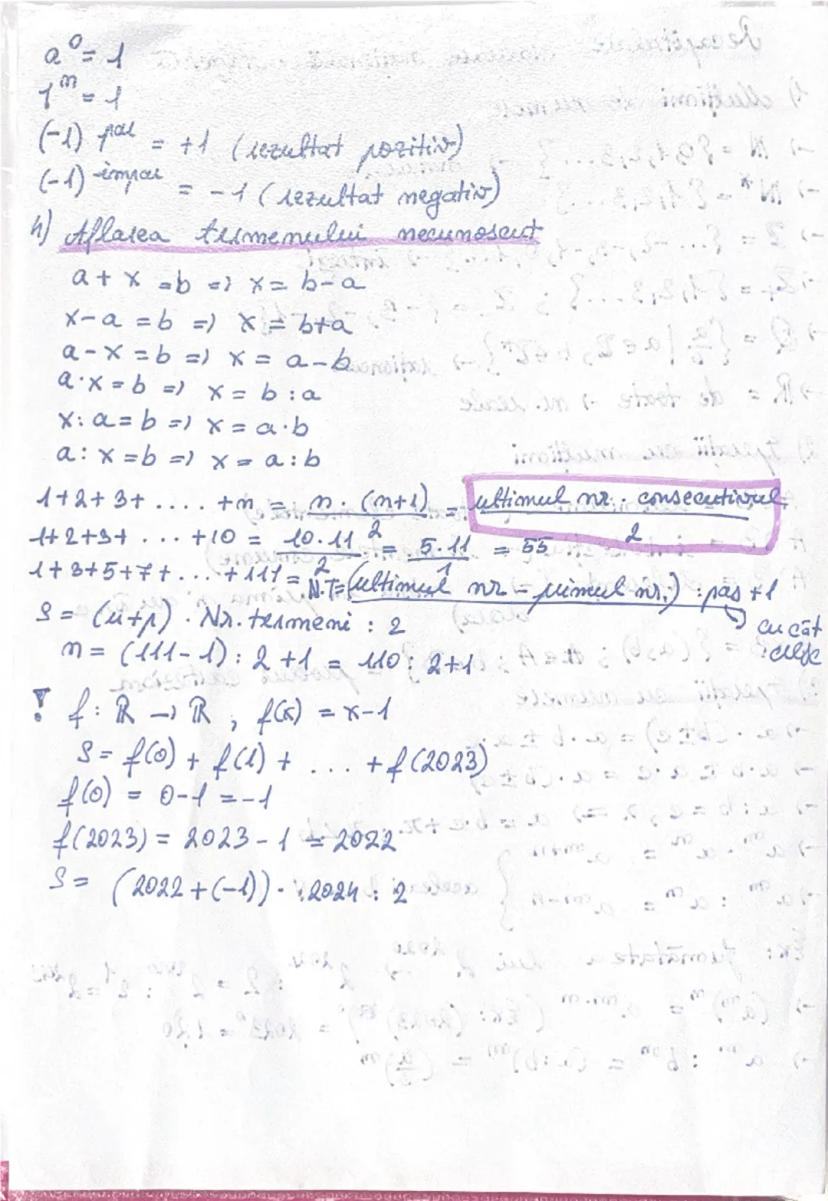 a⁰ = 1
1ᵐ = 1
(-1) par = +1 (rezultat pozitiv)
(-1) impar = -1 (rezultat negativ)
4) Aflarea termenului necunoscut
a + x = b => x = b-a
x-a = b => x = b+a
a-x = b => x = a-b
a·x = b => x = b : a
x : a = b => x = a·b
a : x = b => x = a : b
1+2+3+ .... +n = n·(n+1)/2 = ultimul nr. · consecutivul/2
1+2+3+ ... +10 = 10·11/2 = 5·11/1 = 55
1+3+5+7+ ... +111 = N.T = (ultimul nr - primul nr.) : pas +1
S = (u+p) · Nr. termeni : 2
cu cât
n = (111-1) : 2 +1 = 110 : 2+1
! f : ℝ → ℝ, f(x) = x-1
S = f(0) + f(1) + ... + f(2023)
f(0) = 0-1 = -1
f(2023) = 2023 - 1 = 2022
S = (2022 + (-1)) · 2024 : 2